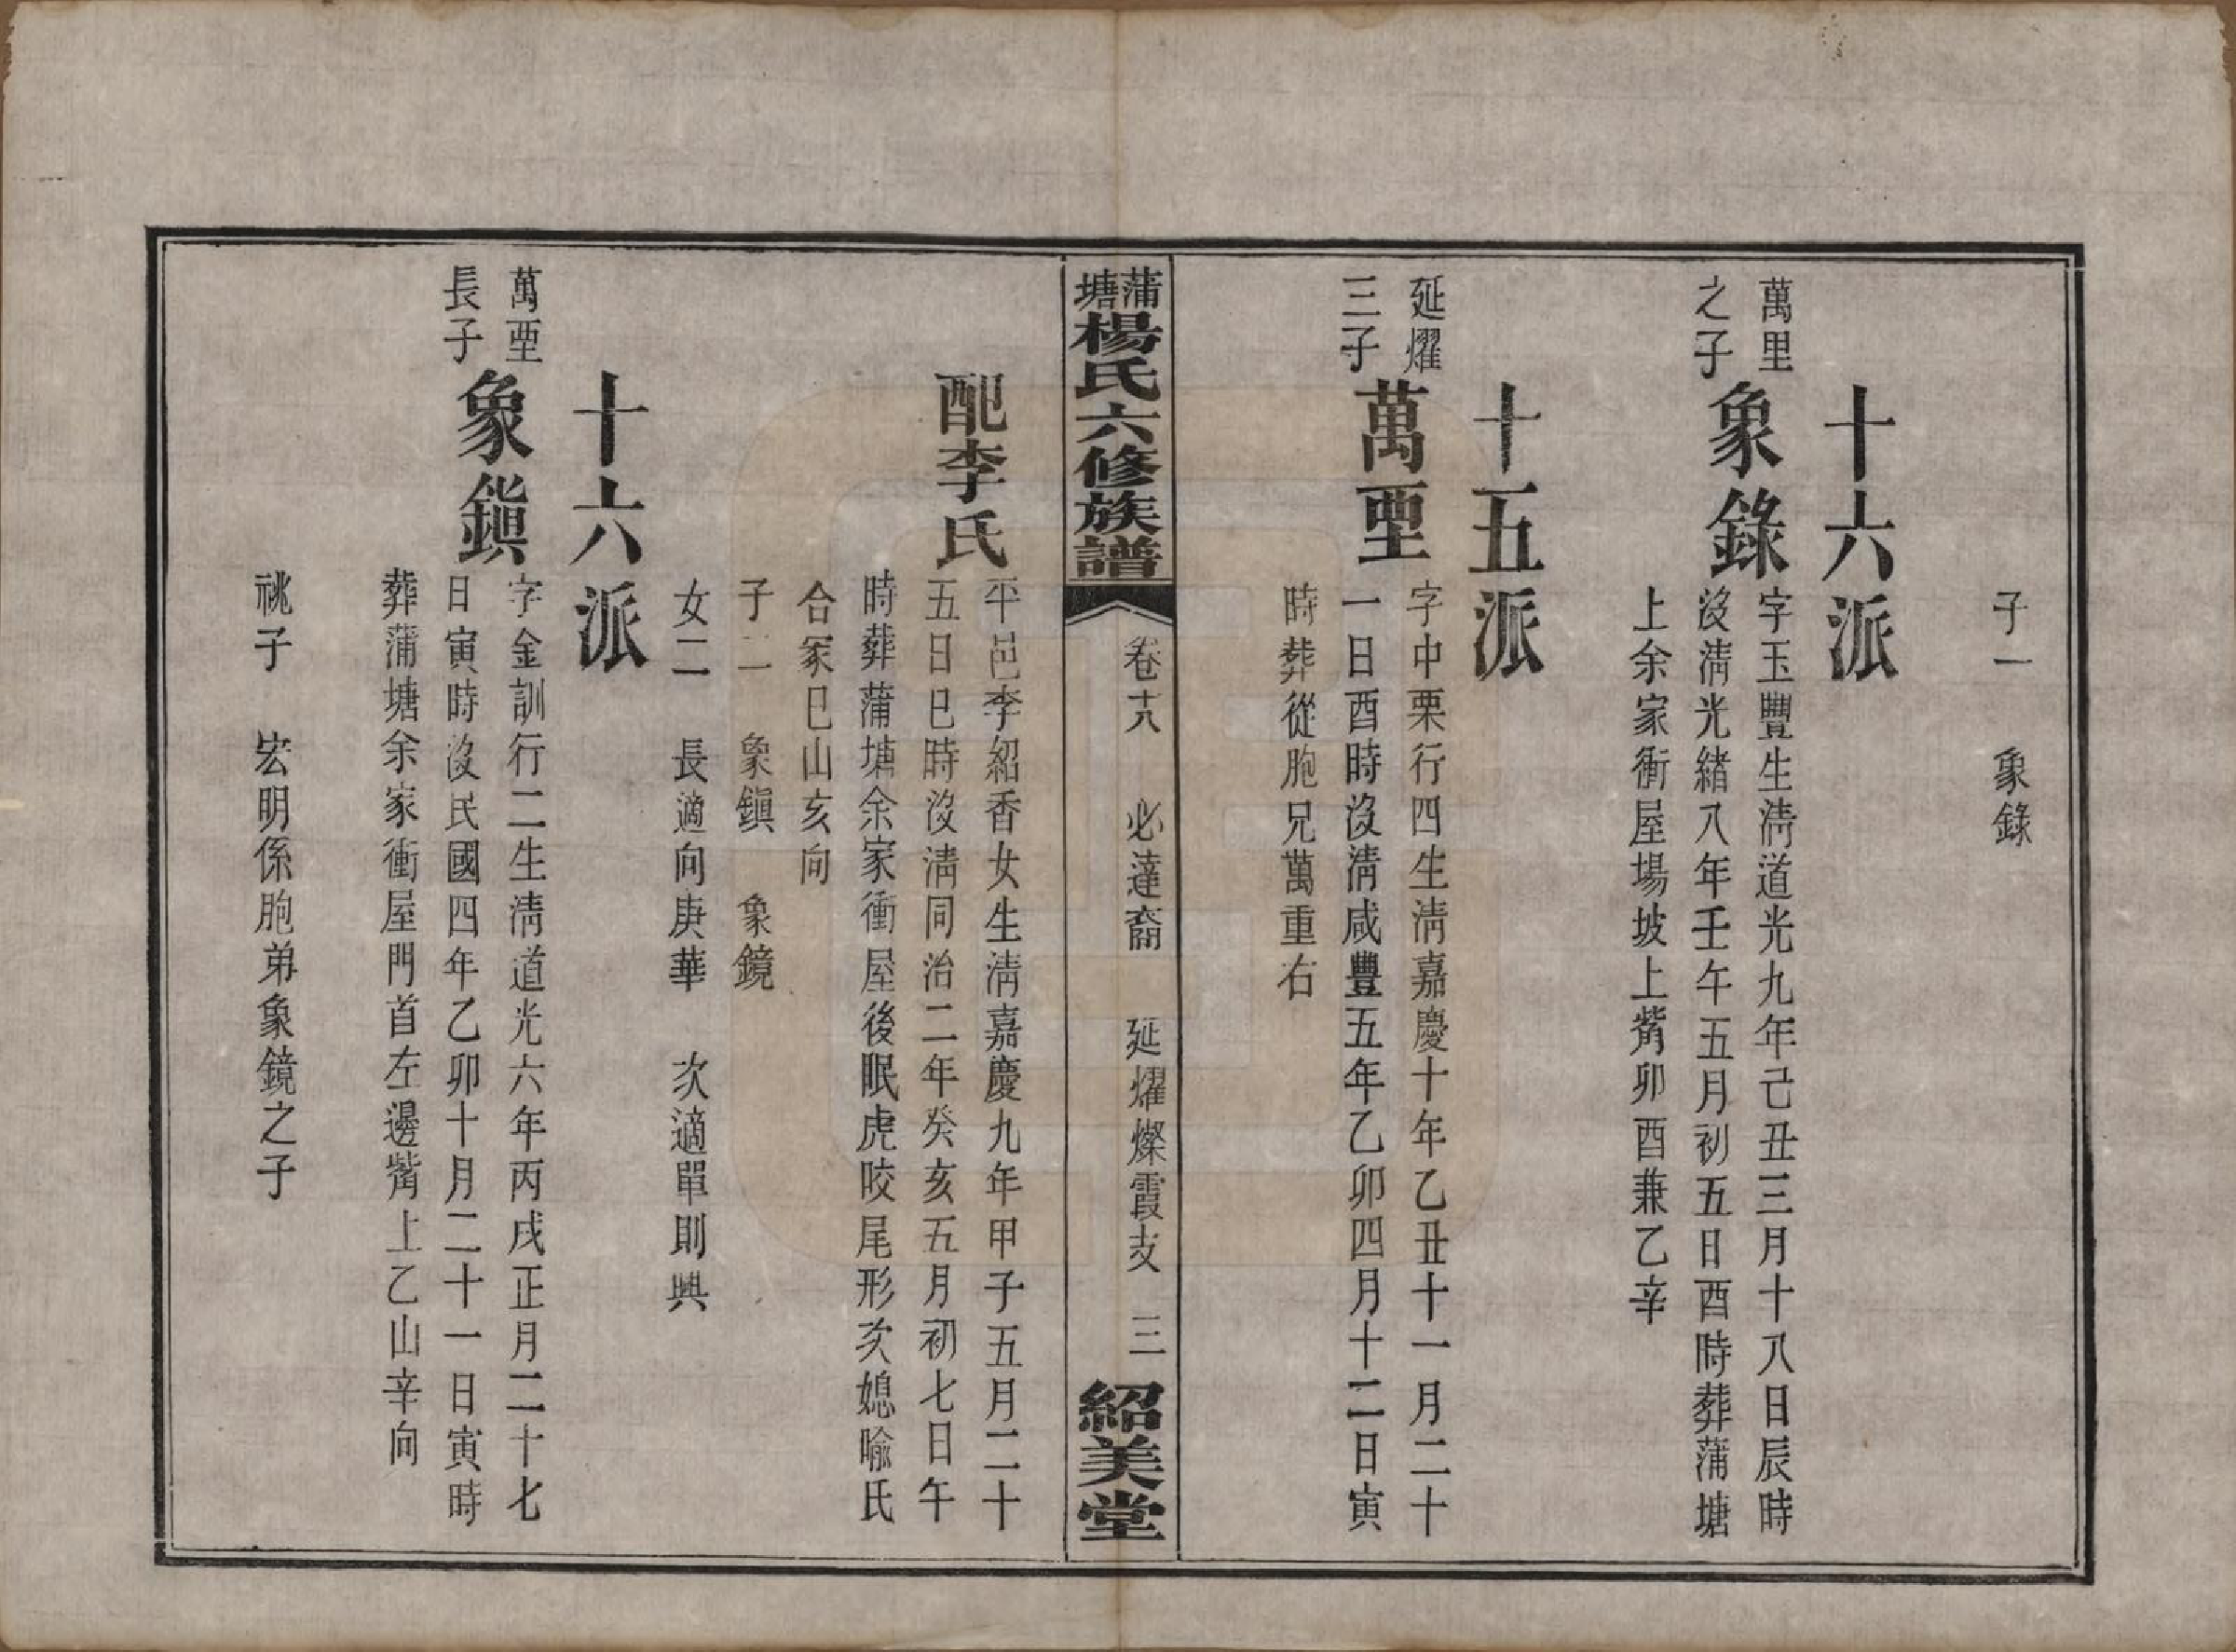 子一　象錄
十六派
萬里之子
象錄
字玉豐生清道光九年己丑三月十八日辰時
沒清光緒八年壬午五月初五日酉時葬蒲塘
上余家衝屋場坡上觜卯酉兼乙辛
十五派
延燿三子
萬垔
字中栗行四生清嘉慶十年乙丑十一月二十
一日酉時沒清咸豐五年乙卯四月十二日寅
時葬從胞兄萬重右
蒲塘楊氏六修族譜　卷十八　必達裔　延燿燦霞支　三　紹美堂
配李氏
平邑李紹香女生清嘉慶九年甲子五月二十
五日巳時沒清同治二年癸亥五月初七日午
時葬蒲塘余家衝屋後眠虎咬尾形次媳喻氏
合冢巳山亥向
子二　象鎮　象鏡
女二　長適向庚華　次適單則興
十六派
萬垔長子
象鎮
字金訓行二生清道光六年丙戌正月二十七
日寅時沒民國四年乙卯十月二十一日寅時
葬蒲塘余家衝屋門首左邊觜上乙山辛向
祧子　宏明係胞弟象鏡之子